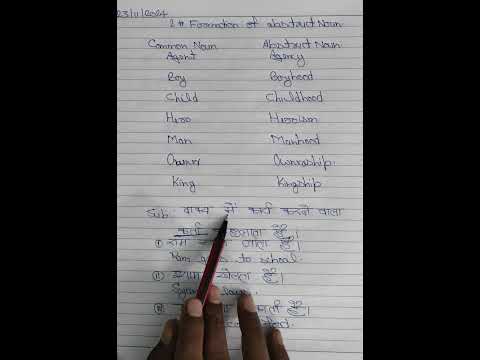 23/11/2024
2 # Formation of abstract Noun
Common Noun Abstract Noun
Agent Agency
Boy Boyhood
Child Childhood
Hero Heroism
Man Manhood
Owner Ownership.
King Kingship
Sub: वाक्य में कार्य करने वाला
कर्ता कहलाता है।
① राम जाता है।
Ram to school.
② श्याम खेलता है।
③ है।